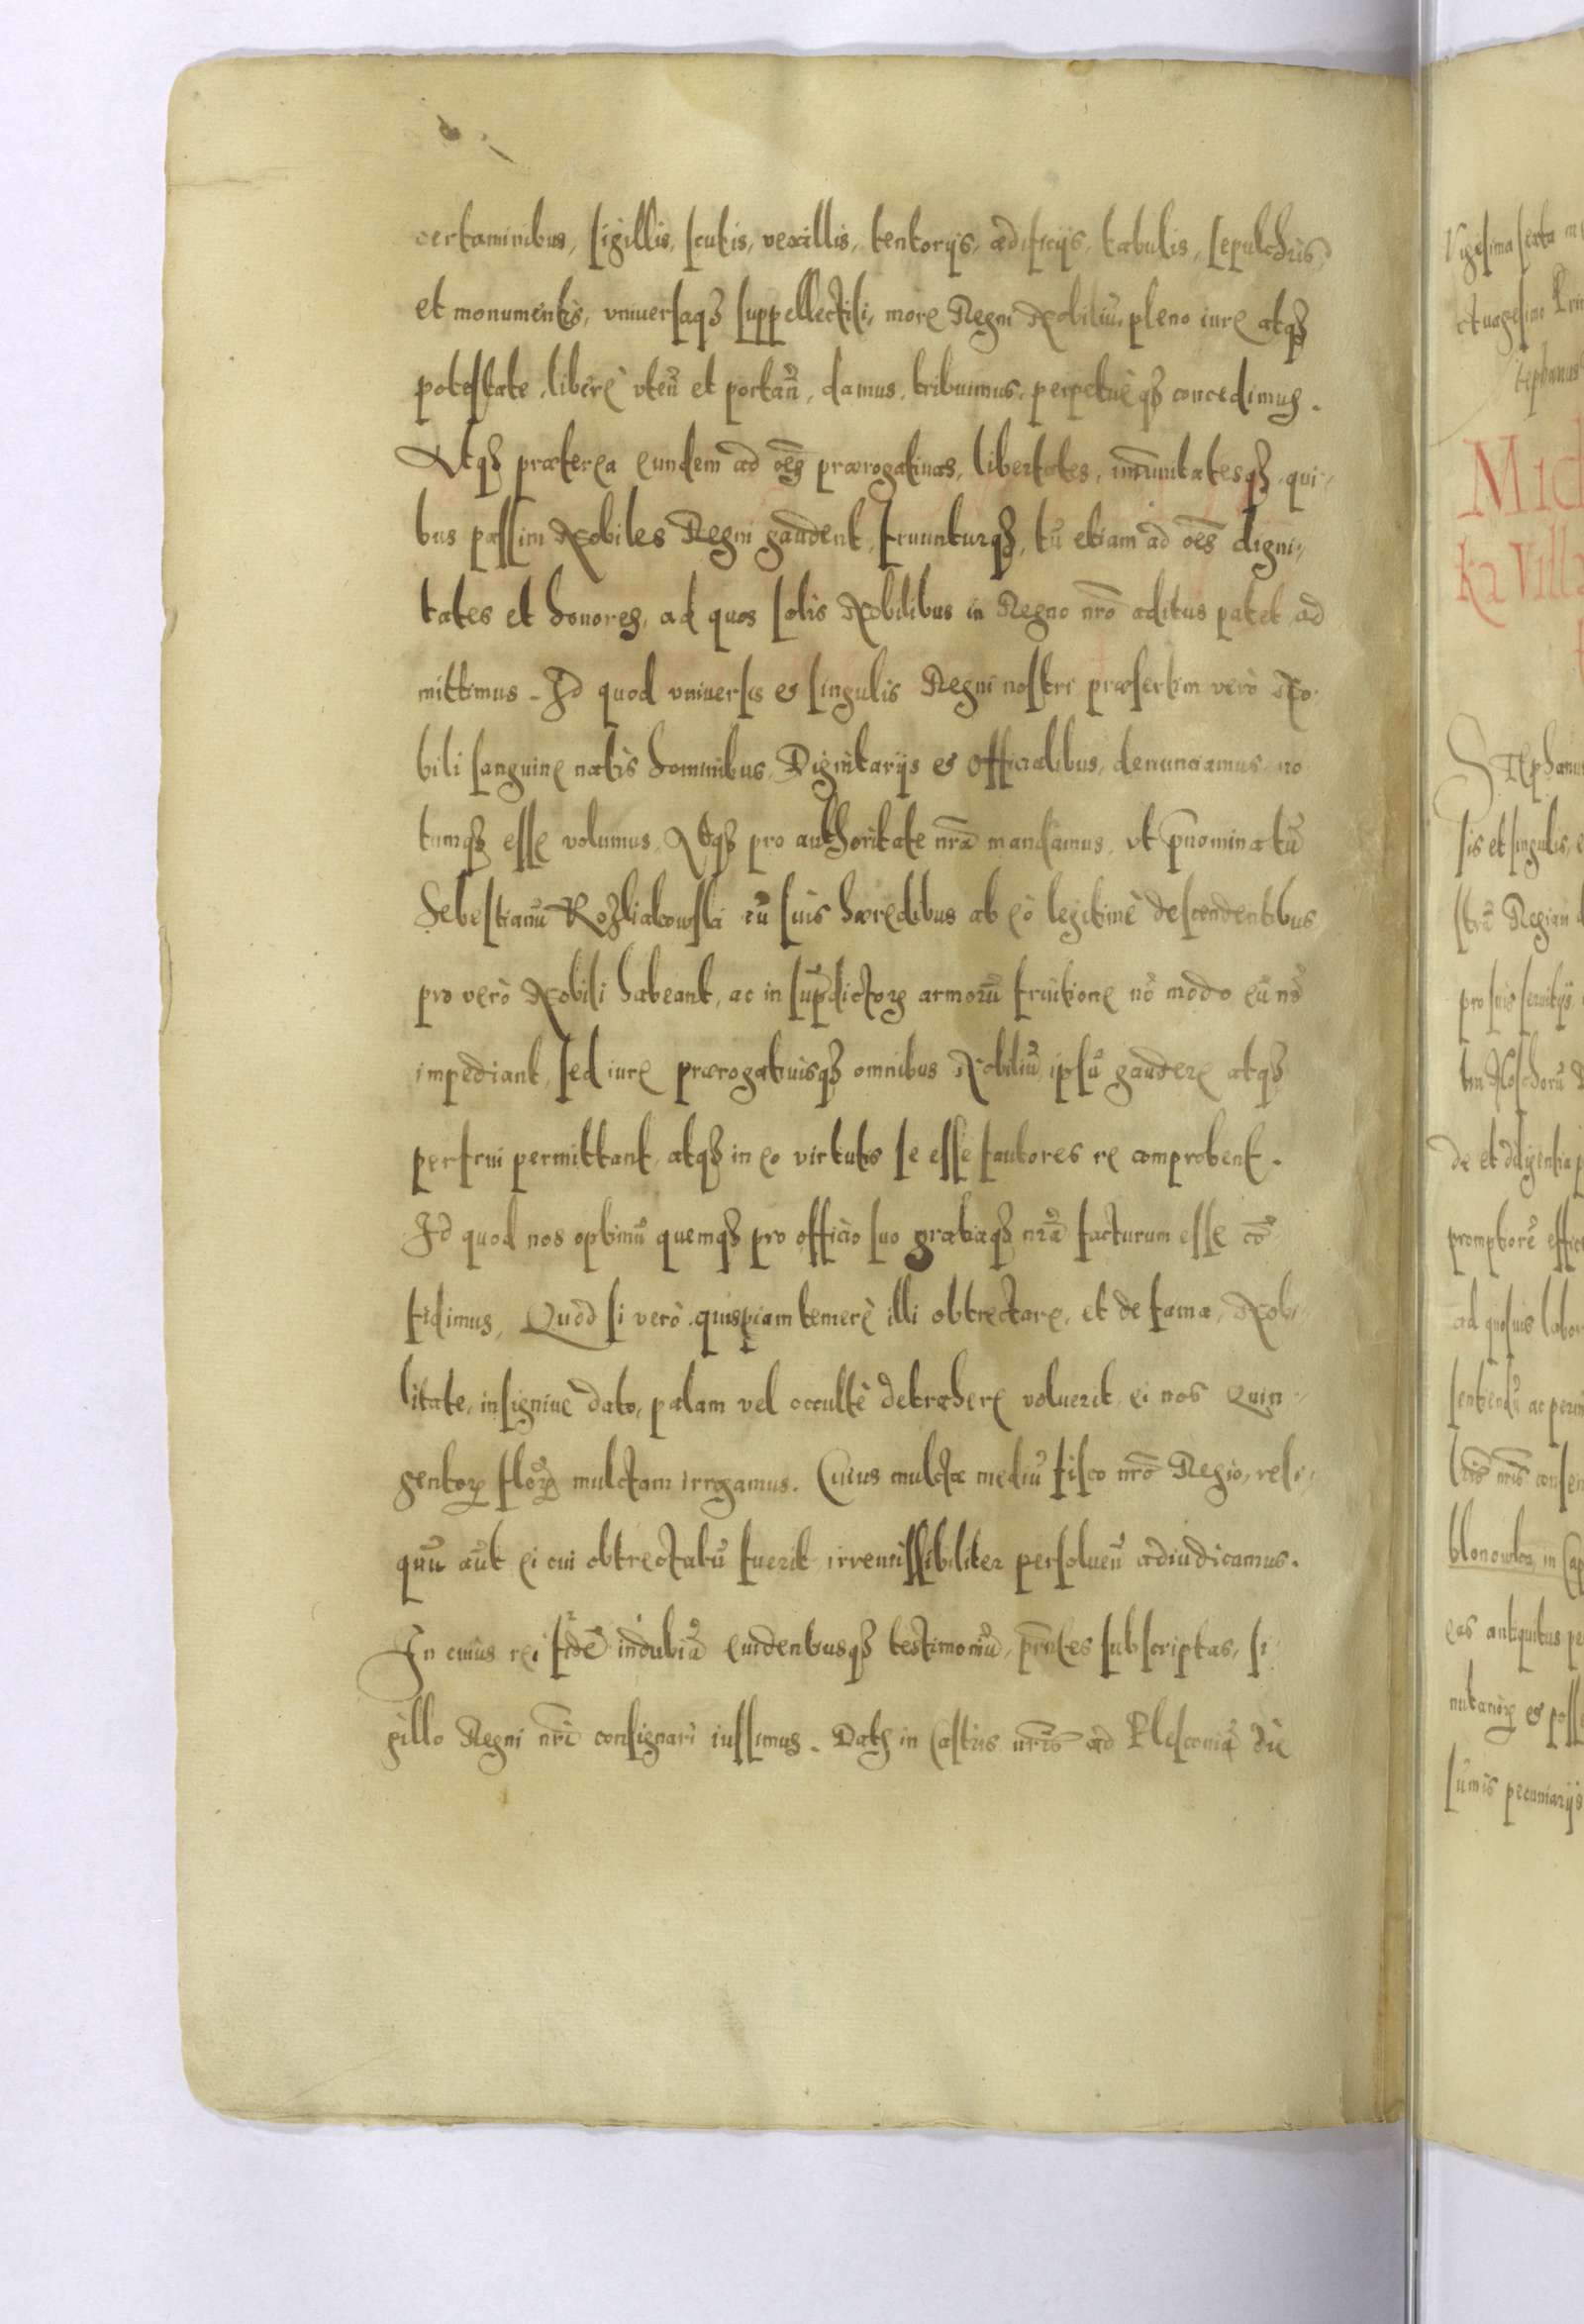 certaminibus, sigillis, scutis, vexillis, tentorijs, ædificijs, tabulis, sepulchris,
et monumentis, vniuersaqȝ suppellectili, more Regni Nobiliũ, pleno iure atqȝ
potestate, liberè vteñ et portañ, damus, tribuimus, perpetuèqȝ concedimus.
Atqȝ præterea eundem ad oẽs prærogatiuas, libertates, im̃unitatesqȝ, qui-
bus passim Nobiles Regni gaudent, fruunturqȝ, tũ etiam ad oẽs digni-
tates et honores, ad quos solis Nobilibus in Regno nrõ aditus patet, ad
mittimus. Id quod vniuersis et singulis Regni nostri præsertim verò No
bili sanguine natis hominibus, Dignitarijs et Officialibus, denunciamus, no
tumqȝ esse volumus, Atqȝ pro authoritate nrã mandamus, vt p̃nominatũ
Sebestianũ Rozliakowski cũ suis hæredibus ab eo legitimè descendentibus
pro verò Nobili habeant, ac in sup̃dictoꝝ armorũ fruitione nõ modo eũ nõ
impediant, sed iure prærogatiuisqȝ omnibus Nobiliũ ipsũ gaudere atqȝ
perfrui permittant, atqȝ in eo virtutis se esse fautores re comprobent.
Id quod nos optimũ quemqȝ pro officio suo gratiaqȝ nrã facturum esse cõ
fidimus, Quòd si verò quispiam temerè illi obtrectare, et de fama, Nobi-
litate, insigniuè dato, palam vel occultè detrahere voluerit, ei nos Quin-
gentoꝝ floꝝ multam irrogamus. Cuius multæ mediũ fisco nrõ Regio, reli-
quũ aũt ei cui obtrectatũ fuerit irremissibiliter persolueñ adiudicamus.
In cuius rei fidẽ indubiã euidentiusqȝ testimoniũ, pñtes subscriptas, si
gillo Regni nrĩ consignari iussimus. Datȝ in Castris nrĩs ad Plesconiã die
Vigesima sexta
ctuagesimo Pri
tephanus
Mich
ka Villa
Stephanus
sis et singulis,
strũ Regiam
pro suis seruitijs
tm Moschorũ
de et diligentia
promptiorẽ effic
ad quosuis labor
sentiendũ ac perm
lr̃is nr̃is consen
blonowka in Cap
eas antiquitus pe
nutanoꝝ et posse
sum̃is pecuniarijs